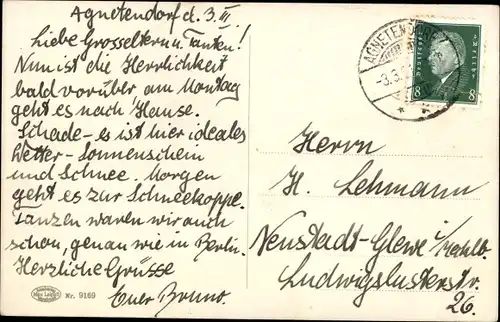 Agnetendorf d. 3. III.
Liebe Grosseltern u. Tanten!
Nun ist die Herrlichkeit
bald vorüber am Montag
geht es nach Hause.
Schade - es ist hier ideales
Wetter - Sonnenschein
und Schnee. Morgen
geht es zur Schneekoppe.
Tanzen waren wir auch
schon, genau wie in Berlin.
Herzliche Grüsse
Euer Bruno.
Nr. 9169
AGNETENDORF
-3.3.
Deutsches Reich
8 8
Herrn
H. Lehmann
Neustadt-Glewe i/Mecklb.
Ludwigslusterstr.
26.